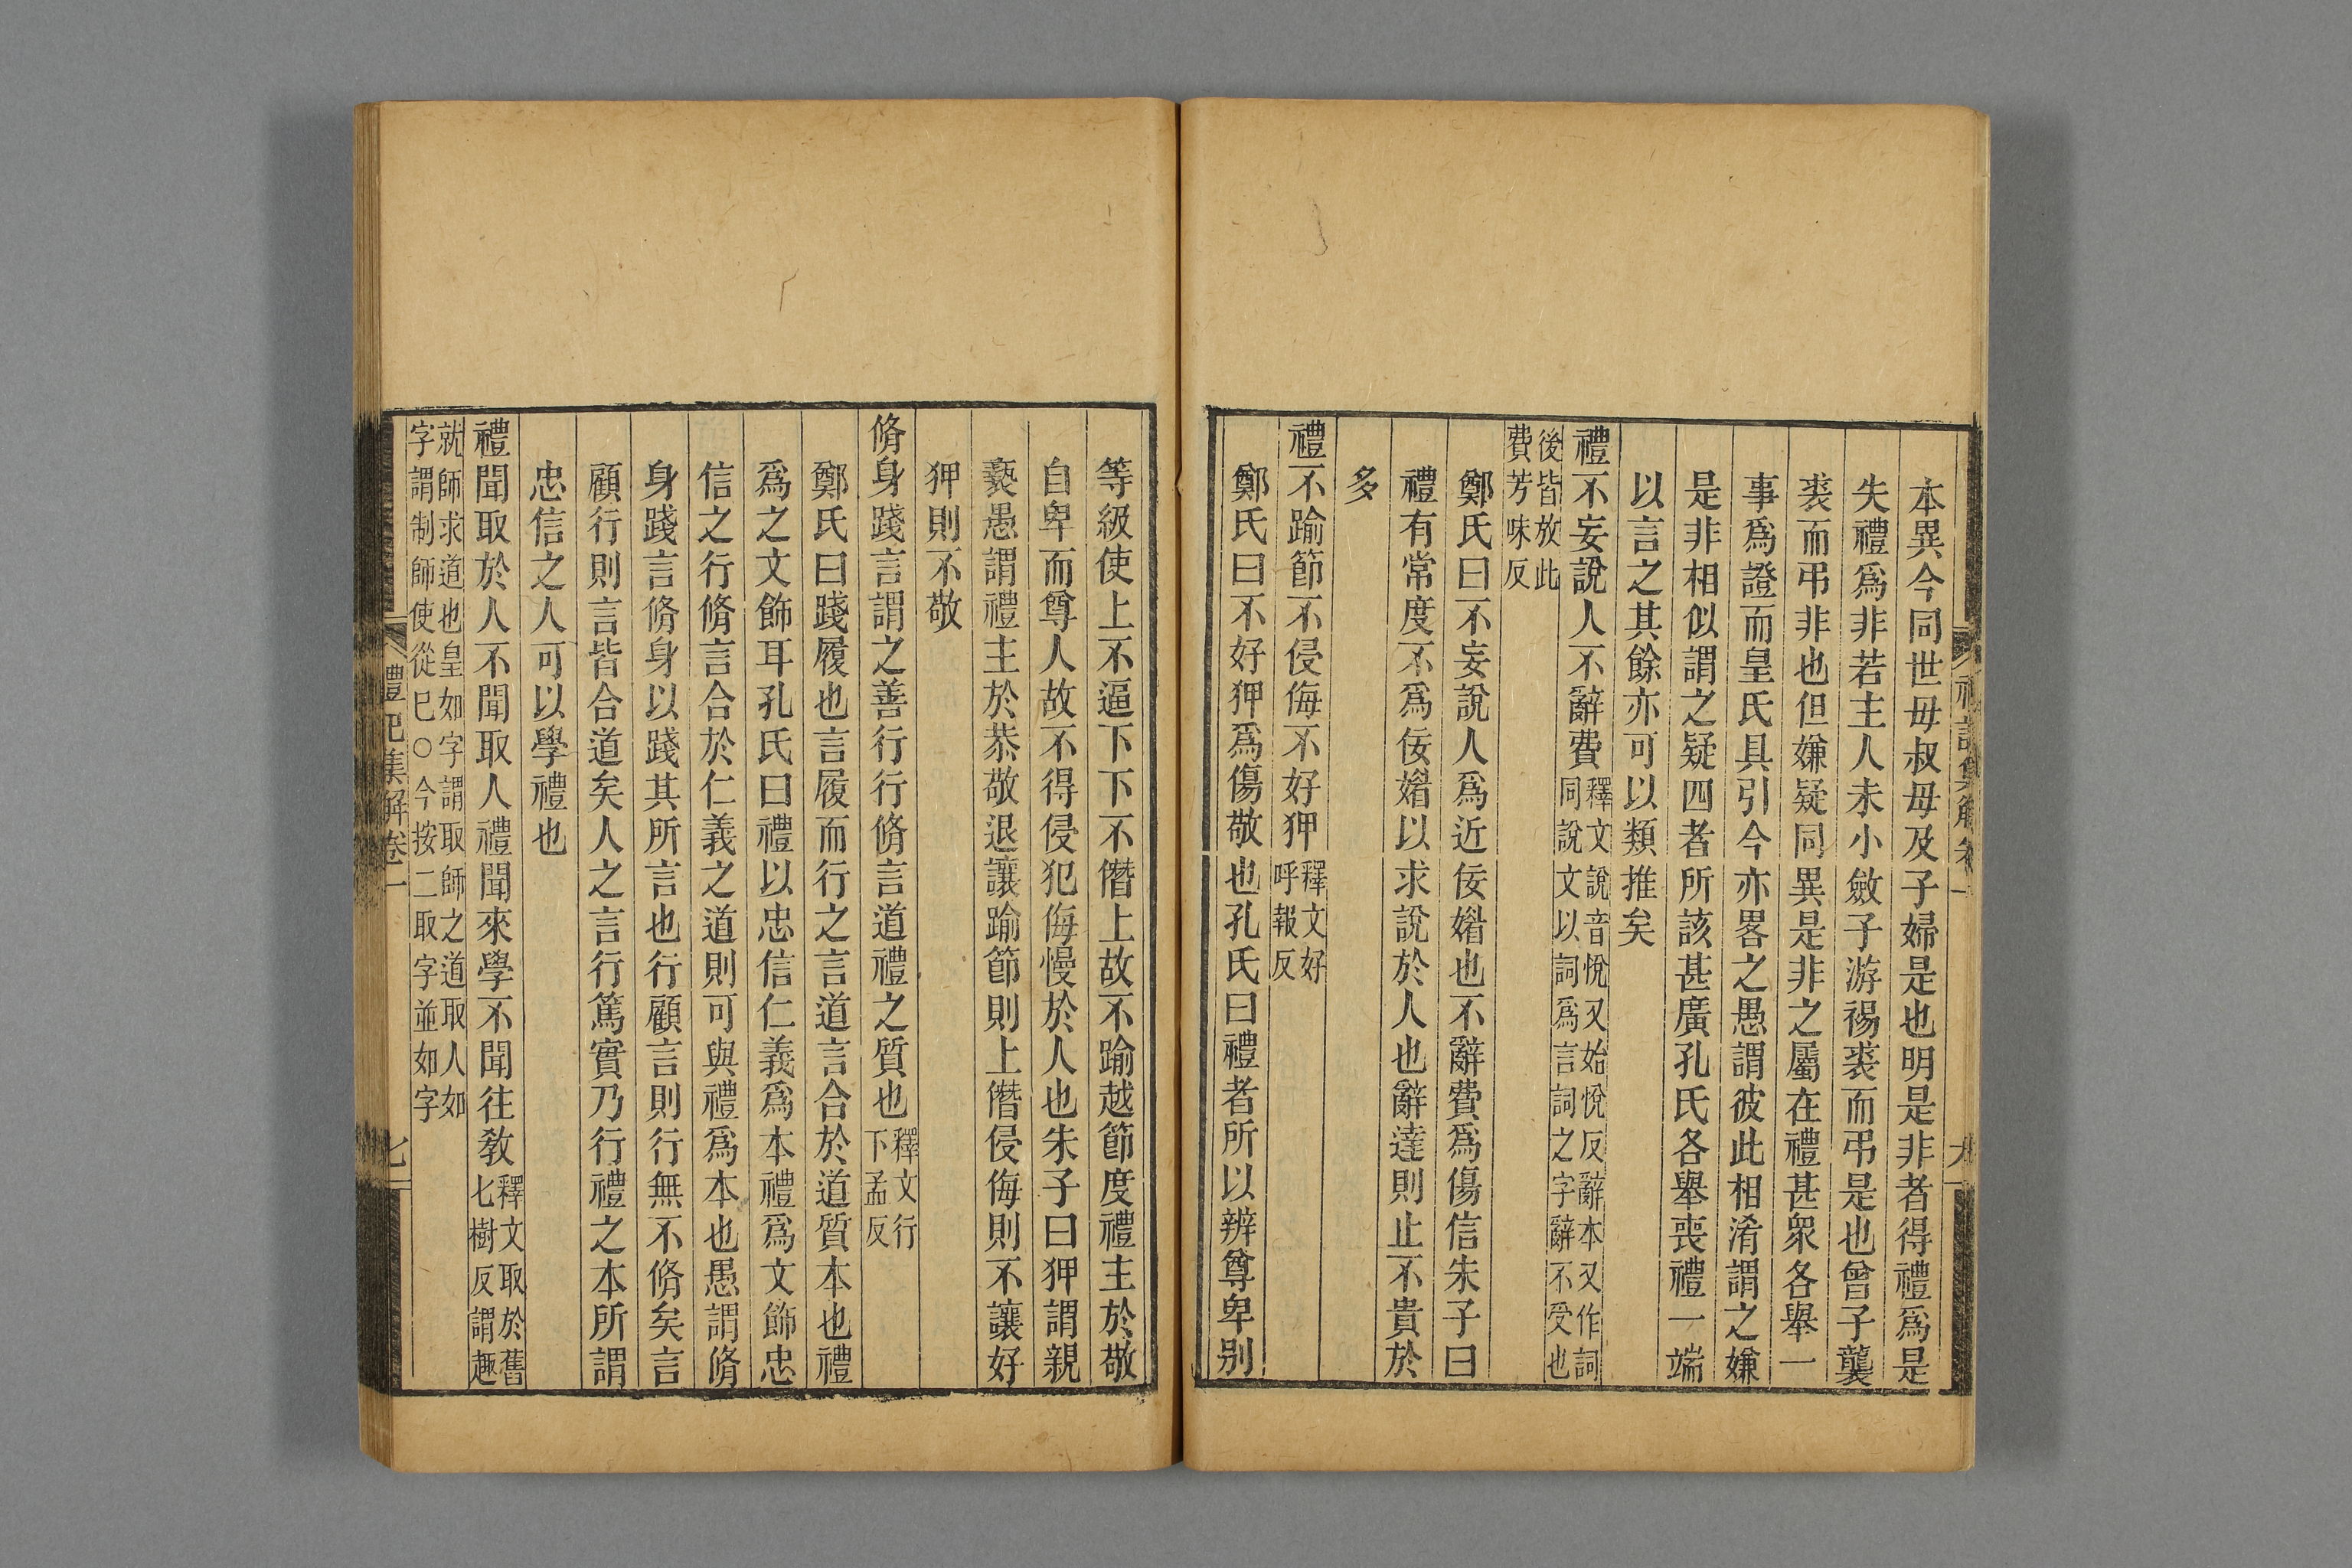 本異今同世母叔母及子婦是也明是非者得禮爲是
失禮爲非若主人未小斂子游裼裘而弔是也曾子襲
裘而弔非也但嫌疑同異是非之屬在禮甚衆各舉一
事爲證而皇氏具引今亦畧之愚謂彼此相淆謂之嫌
是非相似謂之疑四者所該甚廣孔氏各舉喪禮一端
以言之其餘亦可以類推矣
禮不妄說人不辭費釋文說音悅又始悅反辭本又作詞
同說文以詞爲言詞之字辭不受也
後皆放此
費芳味反
鄭氏曰不妄說人爲近佞媚也不辭費爲傷信朱子曰
禮有常度不爲佞媚以求說於人也辭達則止不貴於
多
禮不踰節不侵侮不好狎釋文好
呼報反
鄭氏曰不好狎爲傷敬也孔氏曰禮者所以辨尊卑別
等級使上不逼下下不僭上故不踰越節度禮主於敬
自卑而尊人故不得侵犯侮慢於人也朱子曰狎謂親
褻愚謂禮主於恭敬退讓踰節則上僭侵侮則不讓好
狎則不敬
脩身踐言謂之善行行脩言道禮之質也釋文行
下孟反
鄭氏曰踐履也言履而行之言道言合於道質本也禮
爲之文飾耳孔氏曰禮以忠信仁義爲本禮爲文飾忠
信之行脩言合於仁義之道則可與禮爲本也愚謂脩
身踐言脩身以踐其所言也行顧言則行無不脩矣言
顧行則言皆合道矣人之言行篤實乃行禮之本所謂
忠信之人可以學禮也
禮聞取於人不聞取人禮聞來學不聞往教釋文取於舊
七樹反謂趣
就師求道也皇如字謂取師之道取人如
字謂制師使從已○今按二取字並如字
禮記集解卷一
七